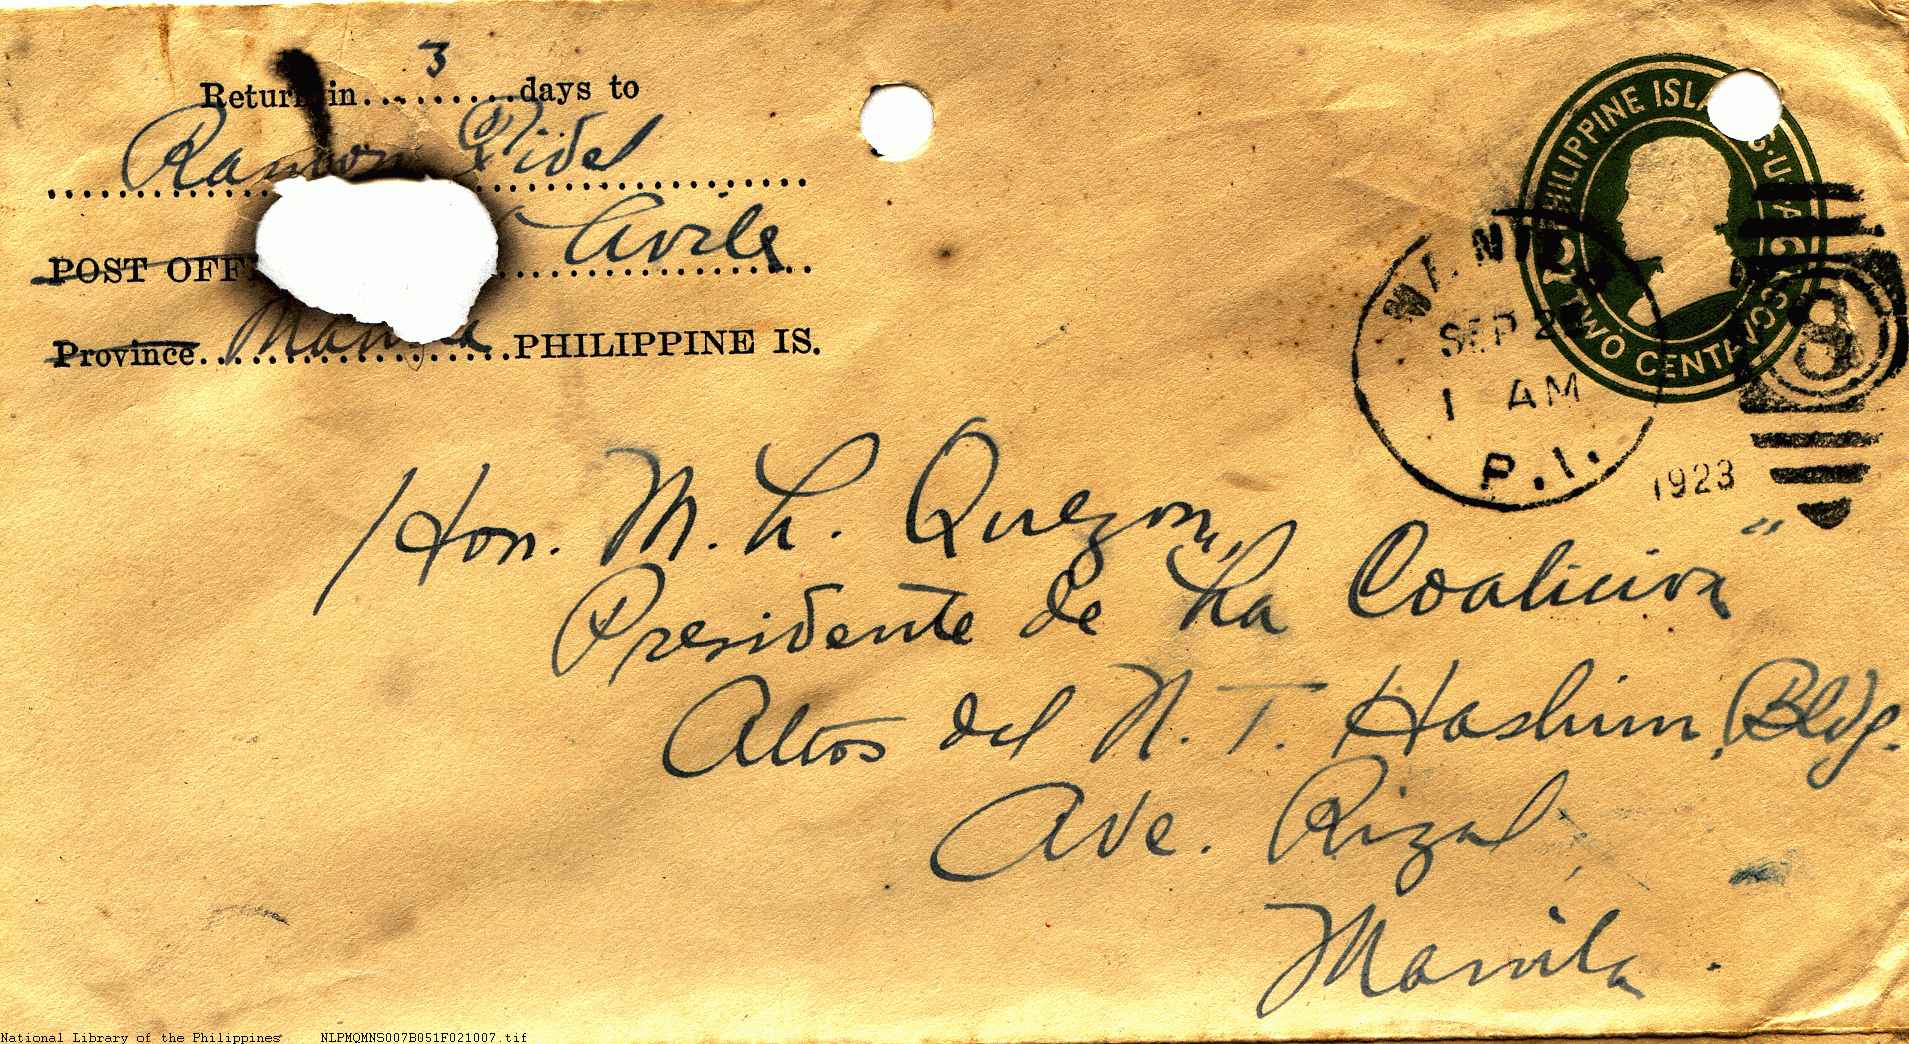 3
Return in.........days to
Ramon Fidel
Avila
POST OFF
Province Manila PHILIPPINE IS.
PHILIPPINE ISLANDS·U·S·A
2 TWO CENTAVOS 2
MANILA
SEP 2
1 AM
P.I.
1923
8
Hon. M. L. Quezon,
Presidente de "La Coalicion"
Altos del N. T. Hashim, Bldg.
Ave. Rizal,
Manila.
National Library of the Philippines NLPMQMNS007B051F021007.tif